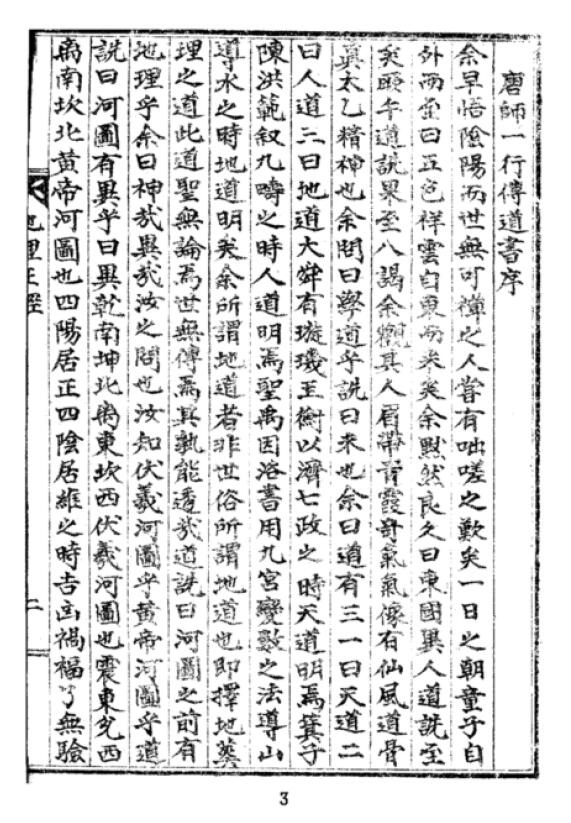 唐師一行傳道書序
余早悟陰陽而世無可禪之人甞有咄嗟之歎矣一日之朝童子自
外而至曰五色祥雲自東而來矣余默然良久曰東國異人道詵至
矣頃午道詵果至入謁余觀其人眉帶青霞奇氣氣像有仙風道骨
眞太乙精神也余問曰學道乎詵曰來也余曰道有三一曰天道二
曰人道三曰地道大舜有璇璣玉衡以濟七政之時天道明焉箕子
陳洪範叙九疇之時人道明焉聖禹因洛書用九宮變數之法導山
導水之時地道明矣余所謂地道者非世俗所謂地道也即擇地葬
理之道此道聖無論焉世無傳焉其孰能透哉道詵曰河圖之前有
地理乎余曰神哉異哉汝之問也汝知伏羲河圖乎黃帝河圖乎道
詵曰河圖有異乎曰異乾南坤北离東坎西伏羲河圖也震東兌西
离南坎北黃帝河圖也四陽居正四陰居維之時吉凶禍福了無驗
地理正經
二
3